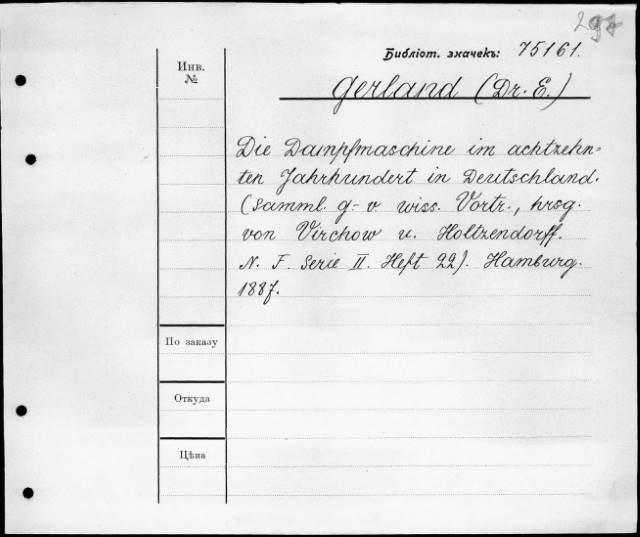 Библіот. значекъ: 75161.
Инв.
№
Gerland (Dr. E.)
Die Dampfmaschine im achtzehn=
ten Jahrhundert in Deutschland.
(Samml. g- v. wiss. Vortr., hrsg.
von Virchow u. Holtzendorff.
N. F. Serie II. Heft 22). Hamburg.
1887.
По заказу
Откуда
Цѣна